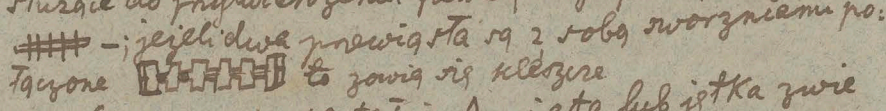 służące do
– ; jeżeli dwa przewiąsła są z sobą sworzniami po:
łączone to zowią się kleszcze
lub jętka zwie